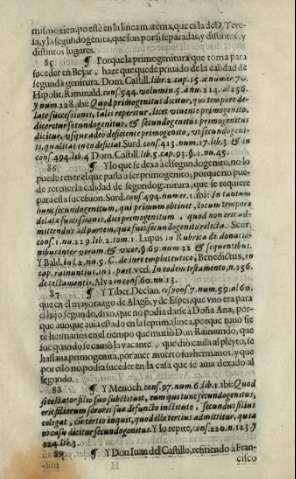 mismo tiempo esté en la linea materna, que es la de D. Tere-
sa, y la segundogenita, que son por si separadas, y distintas, y
distintos lugares.
85 ¶ Porque la primogenitura que toma para
suceder en Bejar, haze que quede privado de la calidad de
segundagenitura. Dom. Castill. lib. 2. cap. 15. à numer. 70.
Hipolit. Riminald. cons. 544. volumen. 5. ann. 214. al 256.
y num. 228. ibi: Quod primogenitus dicitur, qui tempore de-
latæ successionis, talis reperitur, licet vivente primogenito,
diceretur secundogenitus, & secundogenitus primogenitus
dicitur, usque adeo deficiente primogenito, ut secundogeni-
ti, qualitas in eo desit at. Surd. cons. 413. num. 17. lib. 3. & in
cons. 494. lib. 4. Dom. Castill. lib. 5. cap. 93. §. 1. nu. 45.
86 ¶ Y lo que se dexa al segundogenito, no lo
puede tener el que passa à ser primogenito, porque no pue-
de retener la calidad de segundogenitura, que se requiere
para esta sucesion. Surd. cons. 494. numer. 1. ibi: In tantum
nunc secundogenitum, qui primatum obtinet, locum tempore
delatæ successionis, dici primogenitum, quod non erit ad-
mittendus ad partem, quæ fuit secundogenito relicta. Soci.
cons. 1. nu. 219. lib. 2. tom. 1. Lupus in Rubrica de donatio-
nibus inter virum & uxor. §. 69. num. 22. & sequentibus.
Y Bald. in l. 2. nu. 5. C. de iure emphiteutico, Benedictus, in
cap. rainuntius, in 1. part. veri. In eodem testamento, n. 256.
de testamentis. Alva in cons. 60. nu. 13.
87 ¶ Tiber. Decian. respons. 7. num. 59. al 60.
que en el mayorazgo de Alagõ, y de Espes, que vno era para
el hijo segundo, dixo, que no podia darse à Doña Ana, por-
que aunque avia estado en la septima linea, porque tuvo sie-
te hermanos en el tiempo que murió Don Raimundo, que
fue quando se causò la vacante, que diò causa al pleyto, se
hallava primogenita, por aver muerto sus hermanos, y que
por ello no podia suceder en la casa que se avia dexado al
segundo.
88 ¶ Y Menoch. cons. 97. num. 6. lib. 1. ibi: Quod
si testator filio suo substituat, cumque tunc secundogenitus,
eric filiorum sororis suæ defuncto instituto, secundus filius
coligat, incerto inquit, quod ille tertius admittitur, quia
eo casu dicitur secundogenitus. Y lo repite, cons. 220. n. 123. y
224. lib. 3.
89 ¶ Y Don Juan del Castillo, refiriendo à Fran-
cisco